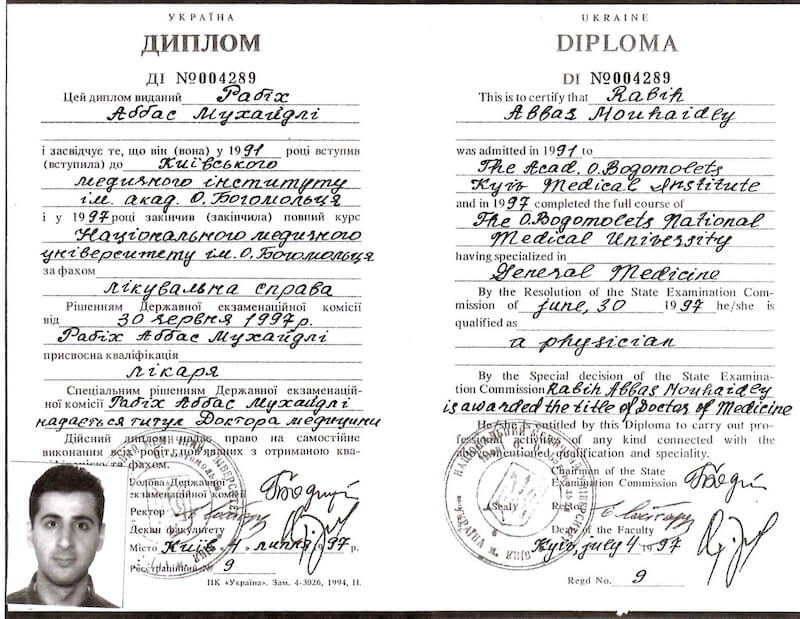 УКРАЇНА
ДИПЛОМ
ДІ №004289
Цей диплом виданий Рабіх
Аббас Мухайдлі
і засвідчує те, що він (вона) у 1991 році вступив
(вступила) до Київського
медичного інституту
ім. акад. О. Богомольця
і у 1997 році закінчив (закінчила) повний курс
Національного медичного
університету ім. О. Богомольця
за фахом
лікувальна справа
Рішенням Державної екзаменаційної комісії
від 30 червня 1997 р.
Рабіх Аббас Мухайдлі
присвоєна кваліфікація
лікаря
Спеціальним рішенням Державної екзаменацій-
ної комісії Рабіх Аббас Мухайдлі
надається титул Доктора медицини
Дійсний диплом надає право на самостійне
виконання всіх робіт, пов'язаних з отриманою ква-
ліфікацією та фахом.
Голова Державної
екзаменаційної комісії
Ректор
Декан факультету
Місто Київ 4 липня 1997 р.
Реєстраційний № 9
ПК «Україна». Зам. 4-3026, 1994, II.
UKRAINE
DIPLOMA
DI №004289
This is to certify that Rabih
Abbas Mouhaidly
was admitted in 1991 to
The Acad. O. Bogomolets
Kyiv Medical Institute
and in 1997 completed the full course of
The O. Bogomolets National
Medical University
having specialized in
General Medicine
By the Resolution of the State Examination Com-
mission of june, 30 1997 he/she is
qualified as
a physician
By the Special decision of the State Examina-
tion Commission Rabih Abbas Mouhaidly
is awarded the title of Doctor of Medicine
He/she is entitled by this Diploma to carry out pro-
fessional activities of any kind connected with the
abovementioned qualification and speciality.
Chairman of the State
Examination Commission
(Seal) Rector
Dean of the Faculty
Kyiv, july 4 1997
Regd No. 9